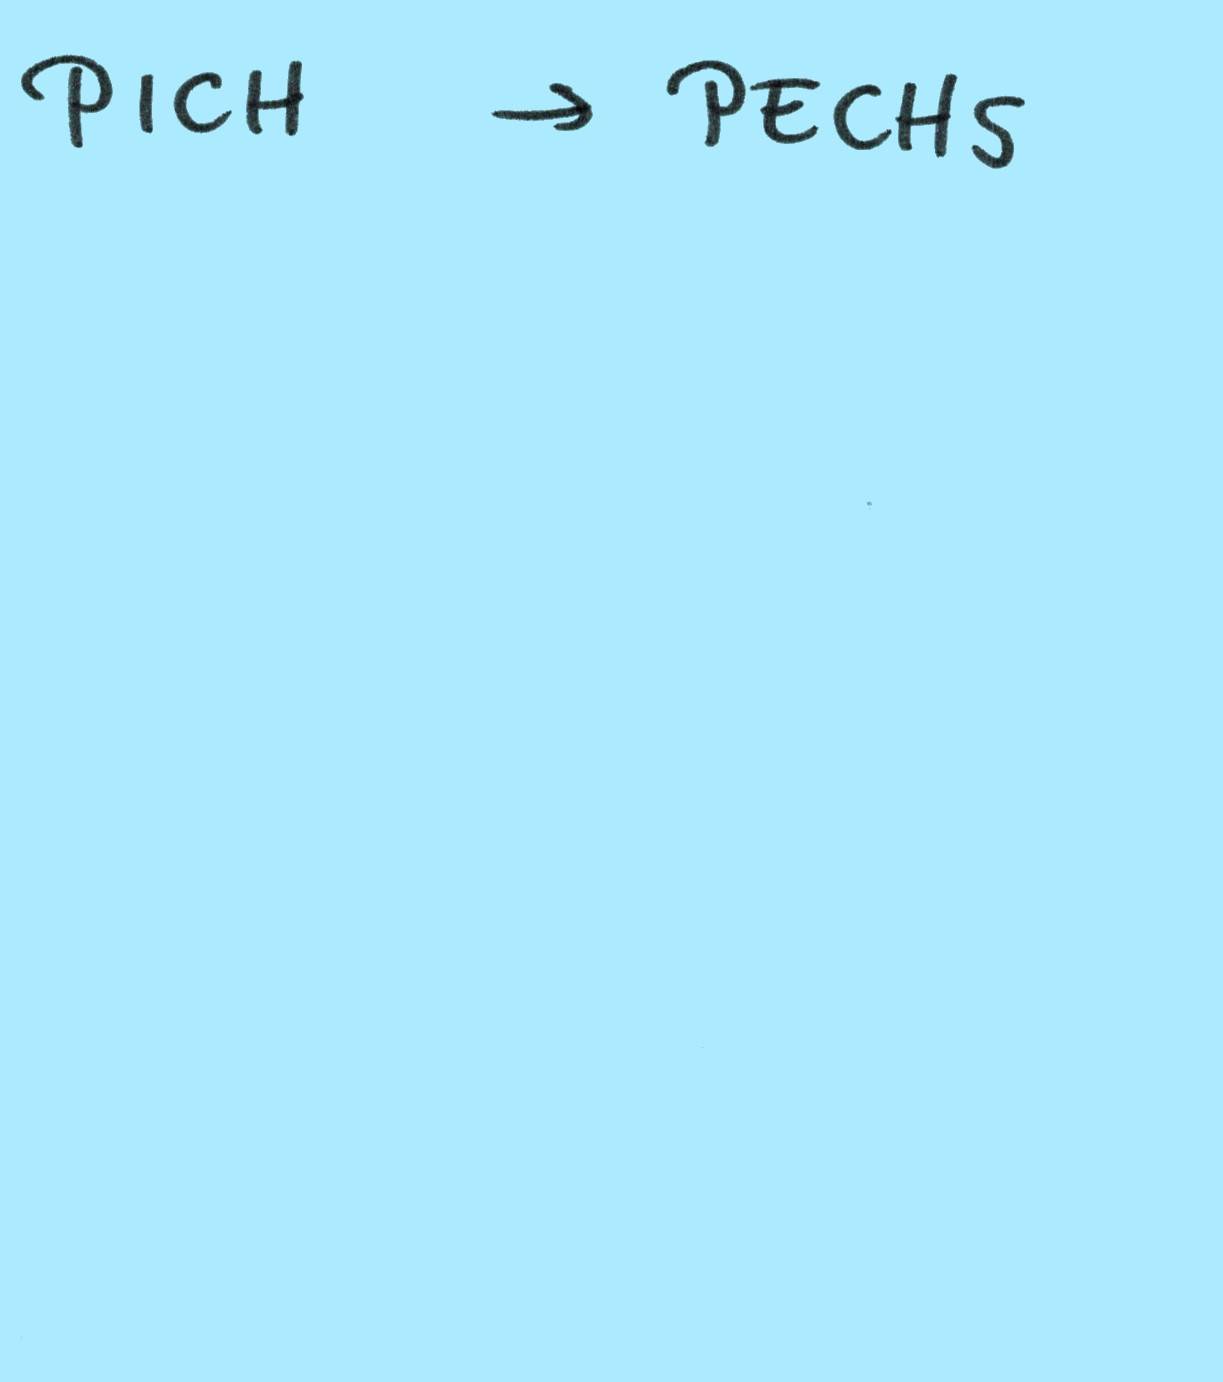 PICH → PECHS